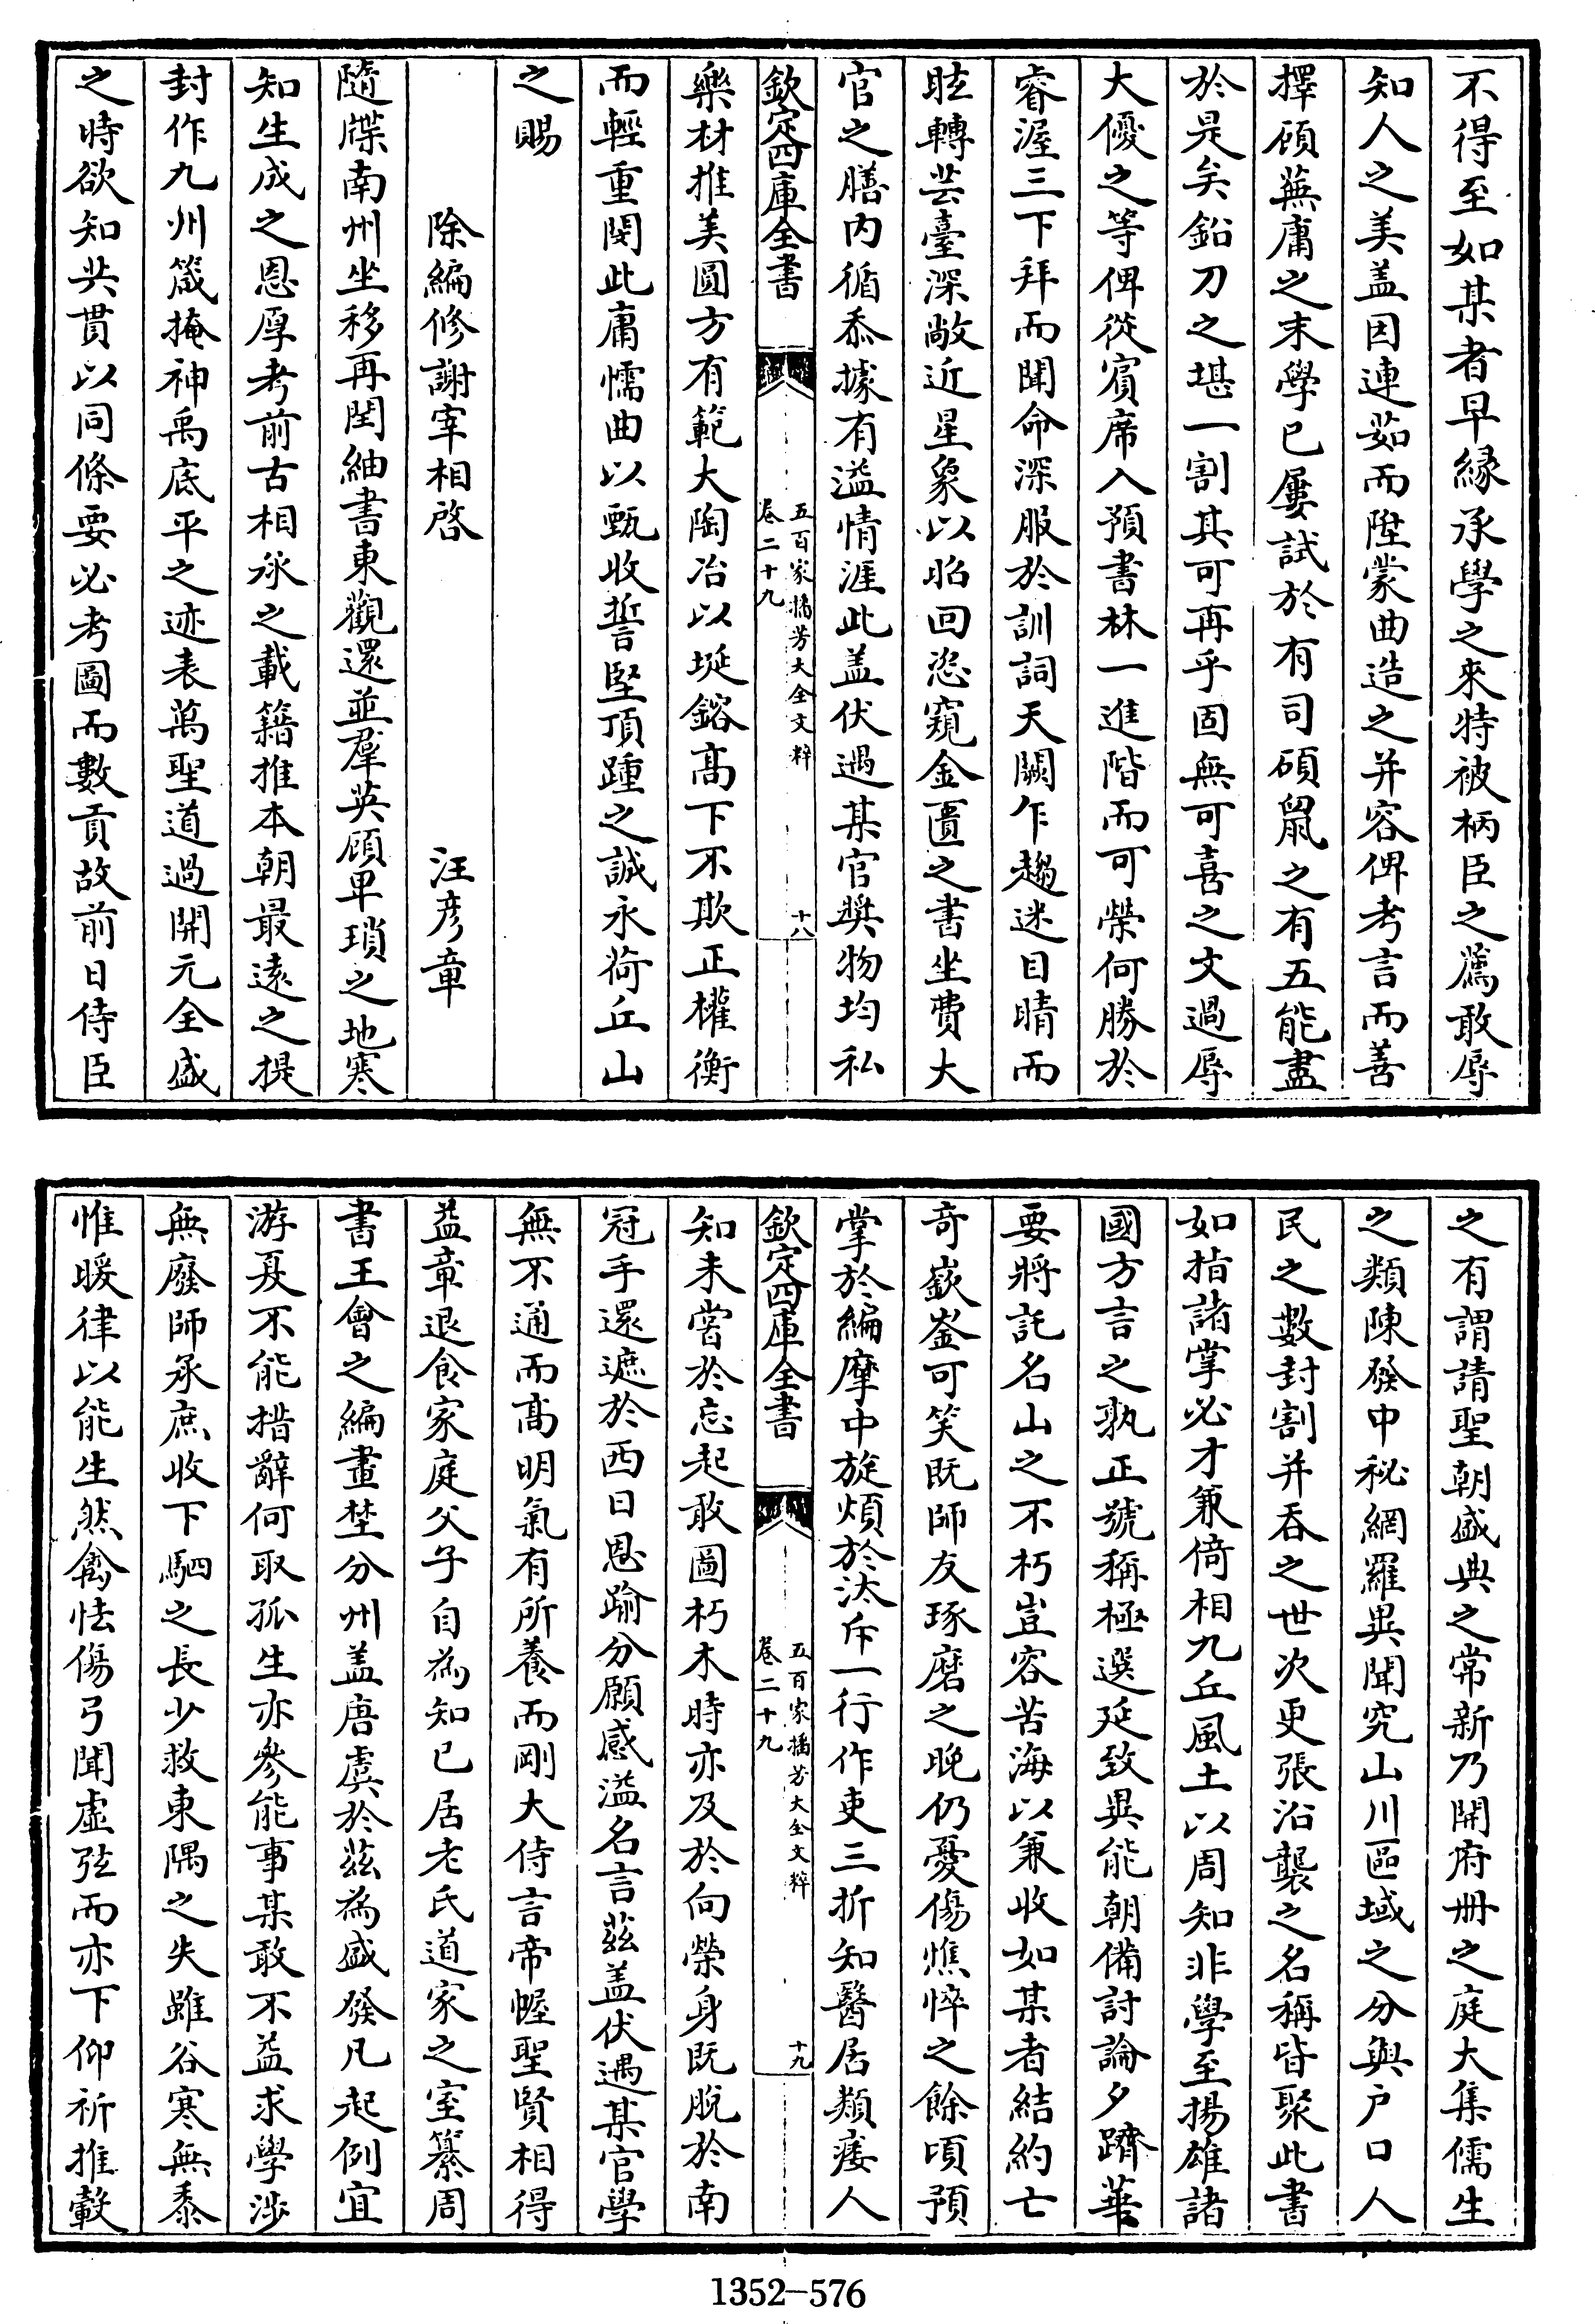 不得至如某者早縁承學之來特被柄臣之薦敢辱
知人之美盖因連茹而陞蒙曲造之并容俾考言而善
擇顧蕪庸之末學已屢試於有司碩鼠之有五能盡
於是矣鉛刀之堪一割其可再乎固無可喜之文過辱
大優之等俾從賔席入預書林一進階而可榮何勝於
睿渥三下拜而聞命深服於訓詞天闕乍趨迷目睛而
眩轉芸臺深敞近星象以昭回恣窺金匱之書坐費大
官之膳内循忝據有溢情涯此盖伏遇某官奬物均私
欽定四庫全書
五百家播芳大全文粹
卷二十九
十八
樂材推美圓方有範大陶冶以埏鎔髙下不欺正權衡
而輕重閔此庸懦曲以甄收誓堅頂踵之誠永荷丘山
之賜
除編修謝宰相啓 汪彦章
隨牒南州坐移再閏紬書東觀還並羣英顧卑瑣之地寒
知生成之恩厚考前古相承之載籍推本朝最逺之提
封作九州箴掩神禹底平之迹表萬聖道過開元全盛
之時欲知共貫以同條要必考圖而數貢故前日侍臣
之有謂請聖朝盛典之常新乃開府冊之庭大集儒生
之類陳發中秘網羅異聞究山川區域之分與户口人
民之數封割并吞之世次更張沿襲之名稱皆聚此書
如指諸掌必才兼倚相九丘風土以周知非學至揚雄諸
國方言之孰正號稱極選延致異能朝備討論夕躋華
要將託名山之不朽豈容苦海以兼收如某者結約亡
竒嶔崟可笑既師友琢磨之晚仍憂傷憔悴之餘頃預
掌於編摩中旋煩於汰斥一行作吏三折知醫居類痿人
欽定四庫全書
五百家播芳大全文粹
卷二十九
十九
知未嘗於忘起敢圖朽木時亦及於向榮身既脱於南
冠手還遮於西日恩踰分願感溢名言兹盖伏遇某官學
無不通而髙明氣有所養而剛大侍言帝幄聖賢相得
益章退食家庭父子自為知已居老氏道家之室纂周
書王會之編畫埜分州盖唐虞於兹為盛發凡起例宜
游夏不能措辭何取孤生亦參能事某敢不益求學渉
無廢師承庶收下駟之長少救東隅之失雖谷寒無黍
惟暖律以能生然禽怯傷弓聞虚弦而亦下仰祈推轂
1352-576